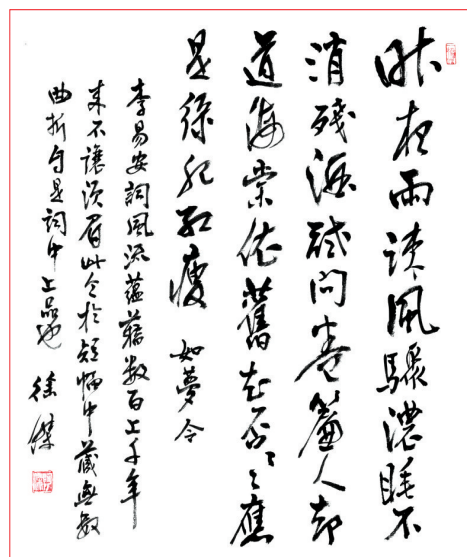 昨夜雨疎風驟濃睡不
消殘酒試問卷簾人却
道海棠依舊知否〻〻應
是綠肥紅瘦 如夢令
李易安詞風流蘊藉數百上千年
來不讓須眉此令於短幅中藏無數
曲折自是詞中上品也 徐傑